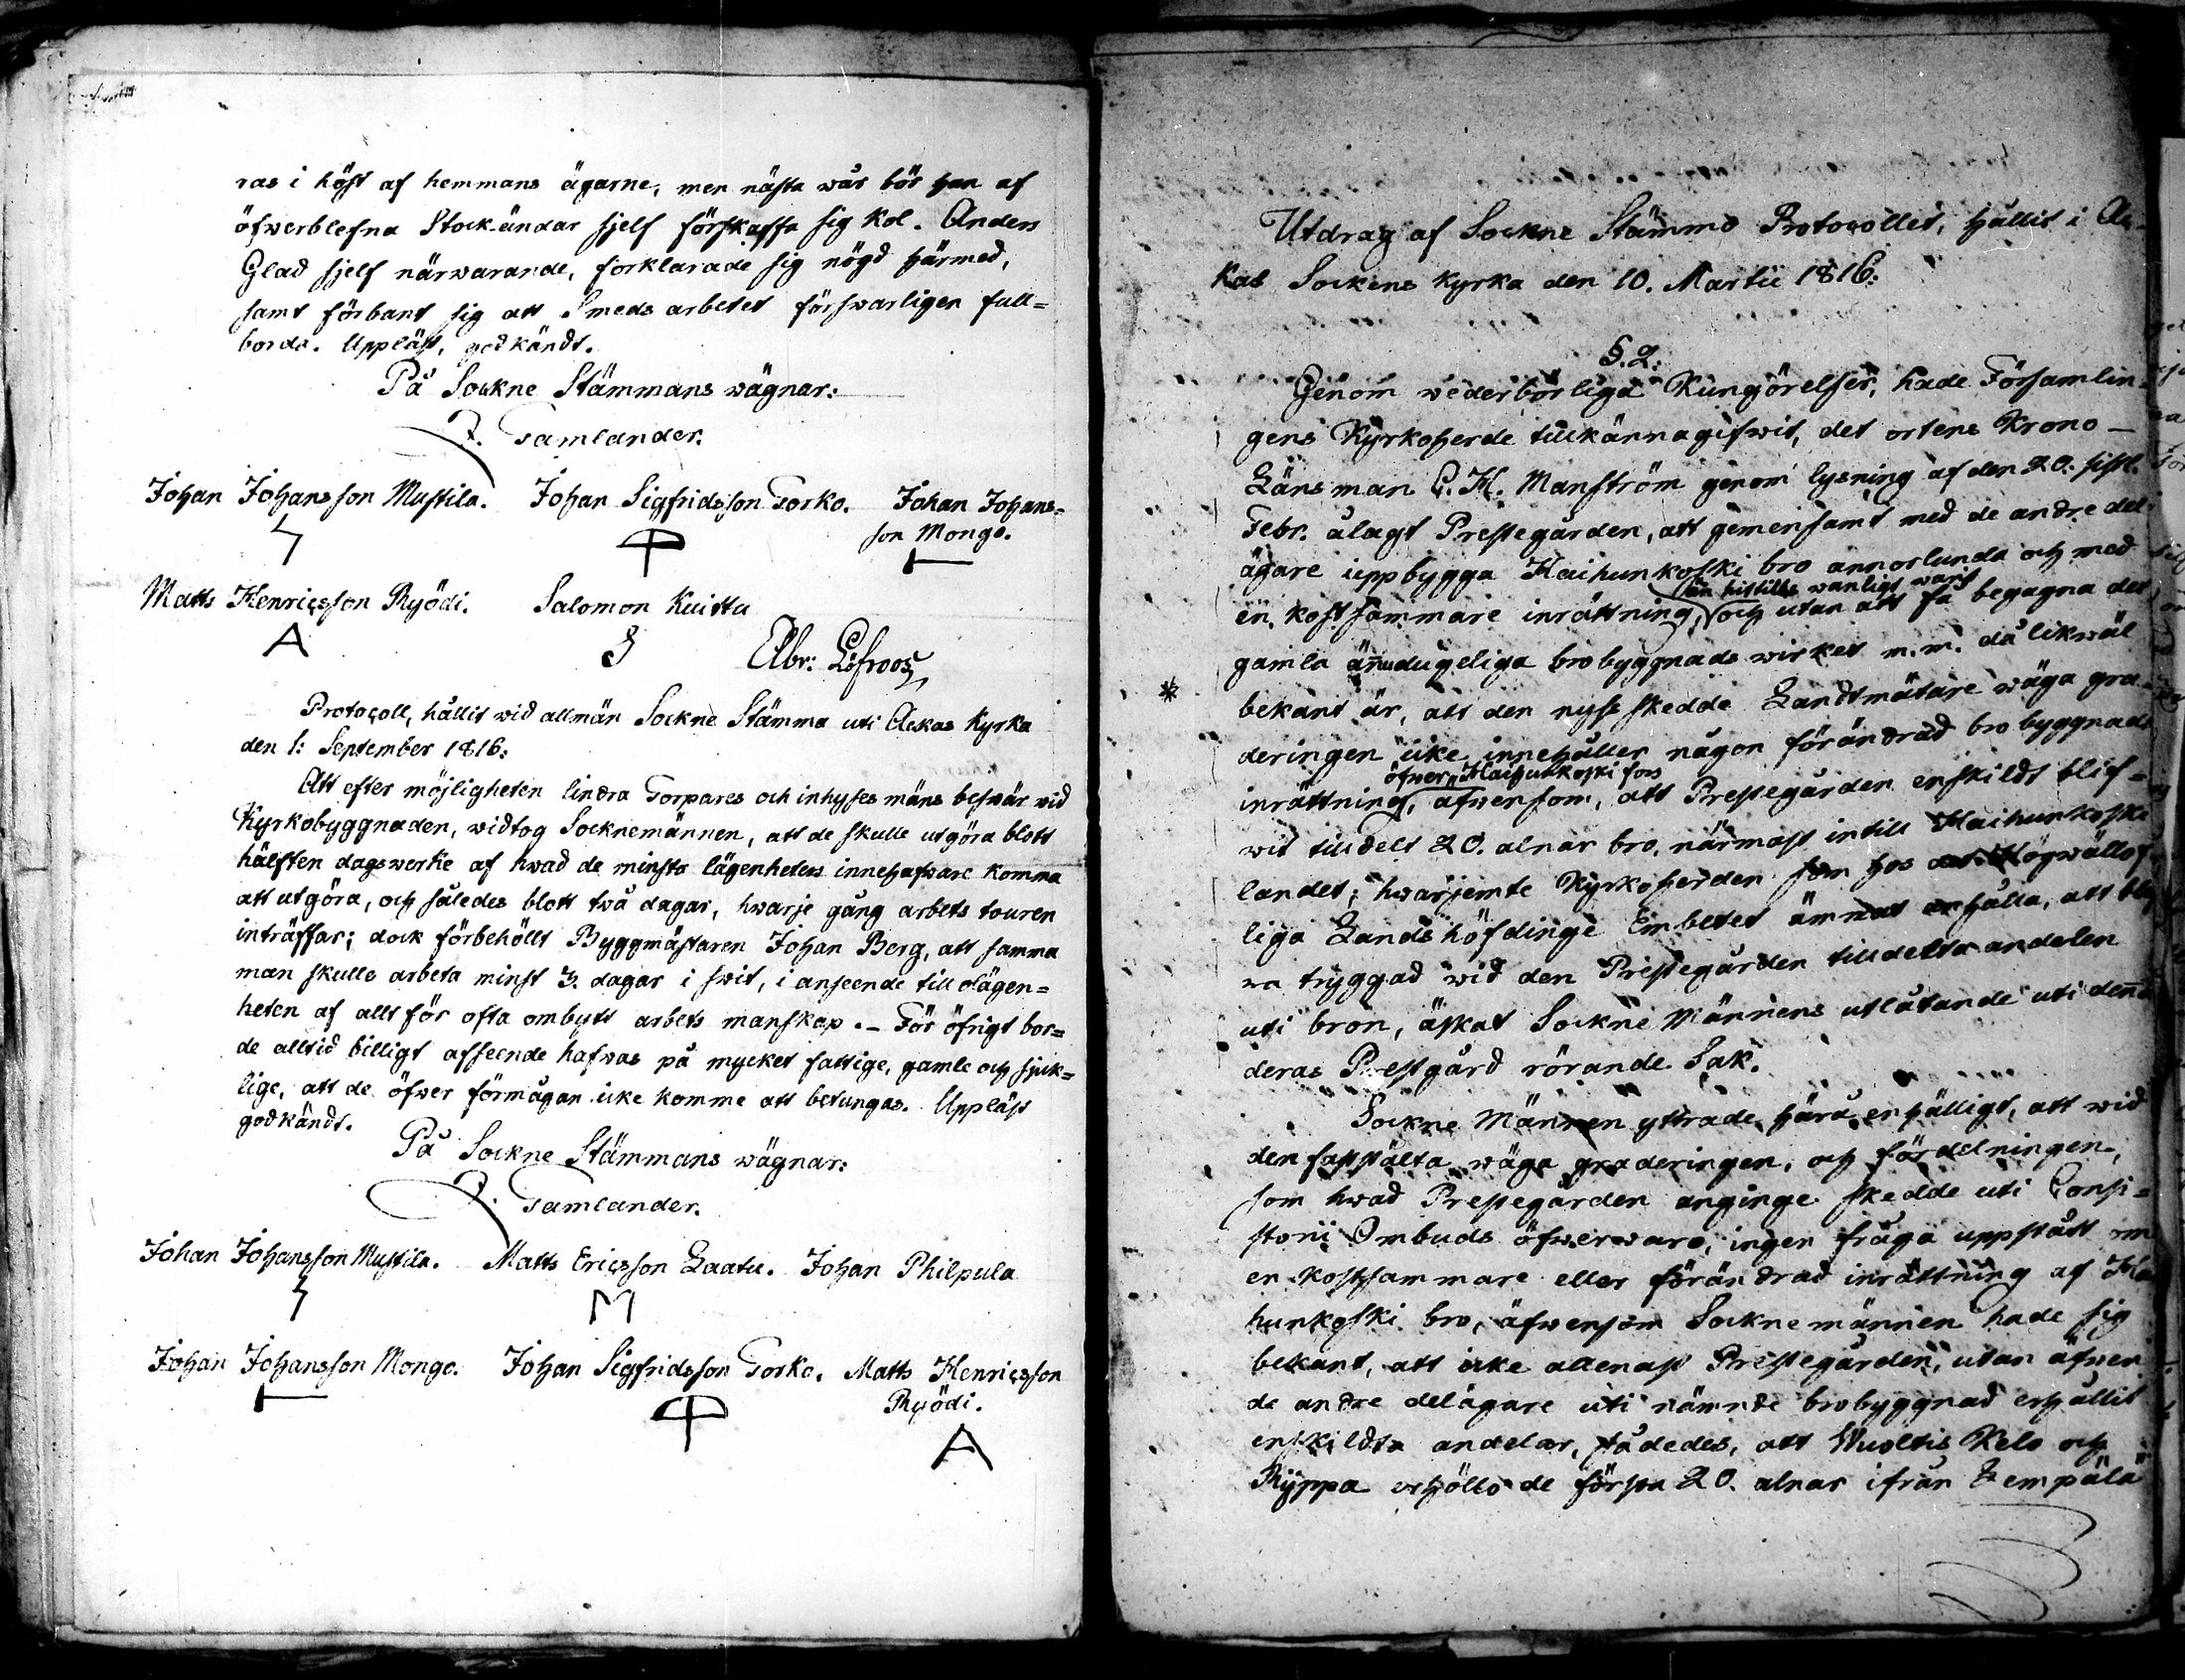 ras i höst af hemmans ägarne, men nästa wår bör han af
öfwerblefna Stock-ändar sjelf förskaffa sig kol. Anders
Glad sjelf närwarande, förklarade sig nögd härmed,
samt förbant sig att Smeds arbetet förswarligen full=
borda. Uppläst, godkändt.
På Sockne Stämmans wägnar:
F. Tamlander.
Johan Johansson Mustila. Johan Sigfridsson Torko. Johan Johans=
son Mongo.
Matts Henricsson Ryödi. Salomon Kuittu
Abr: Löfroos
Protocoll, hållit wid allmän Sockne Stämma uti Ackas Kyrka
den 1: September 1816:
Att efter möjligheten lindra Torpares och inhyses mäns beswär wid
Kyrkobyggnaden, widtog Socknemännen, att de skulle utgöra blott
hälften dagswerke af hwad de minsta lägenheters innehafware komma
att utgöra, och således blott twå dagar, hwarje gång arbets touren
inträffar; dock förbehöllt Byggmästaren Johan Berg, att samma
man skulle arbeta minst 3. dagar i swit, i anseende till olägen=
heten af allt för ofta ombytt arbets manskap. – För öfrigt bor=
de alltid billigt afseende hafwas på mycket fattige, gamle och sjuk=
lige, att de öfwer förmågan icke komme att betungas. Uppläst
godkändt.
På Sockne Stämmans wägnar:
F. Tamlander.
Johan Johansson Mustila. Matts Ericsson Laatu. Johan Philpula
Johan Johansson Mongo. Johan Sigfridsson Torko. Matts Henricsson
Ryödi.
Utdrag af Sockne Stämmo Protocollet, hållit i Ac-
kas Sockens Kyrka den 10. Martii 1816:
§. 2.
Genom wederbörliga Kungörelser, hade Församlin-
gens Kyrkoherde tillkännagifwit, det ortens Krono-
Länsman C. H. Manström genom lysning af den 20. sistl.
Febr. ålagt Prestegården, att gemensamt med de andre del-
ägare uppbygga Haihunkoski bro annorlunda och med
än hittills wanligt warit
en kostsammare inrättning, och utan att få begagna det
gamla ännu dugeliga brobyggnads wirket m. m. då likwäl
* bekant är, att den nyss skedde Landtmätare wäga gra-
deringen icke innehåller någon förändrad bro byggnads
öfwer Haihunkoski fors
inrättning, äfwensom, att Prestegården enskildt blif-
wit tilldelt 20. alnar bro, närmast intill Haihunkoski
landet; hwarjemte Kyrkoherden som hos Högwällof-
liga Landshöfdinge Embetet ämnat anhålla, att blif
wa tryggad wid den Prestegården tilldelta andelen
uti bron, äskat Sockne Männens utlåtande uti denna
deras Prestgård rörande Sak.
Sockne Männen yttrade härå enhälligt, att wid
den wäga graderingen, och fördelningen,
som hwad Prestegården anginge skedde uti Consi=
storii Ombuds öfwerwaro, ingen fråga uppstått om
en kostsammare eller förändrad inrättning af Hai
hunkoski bro, äfwensom Socknemännen hade sig
bekant, att icke allenast Prestegården, utan äfwen
de andre delägare uti nämnde brobyggnad erhållit
enskildta andelar, sådedes, att Wuoltis Kelo och
Ryppa erhöllo de första 20. alnar ifrån Lempälä